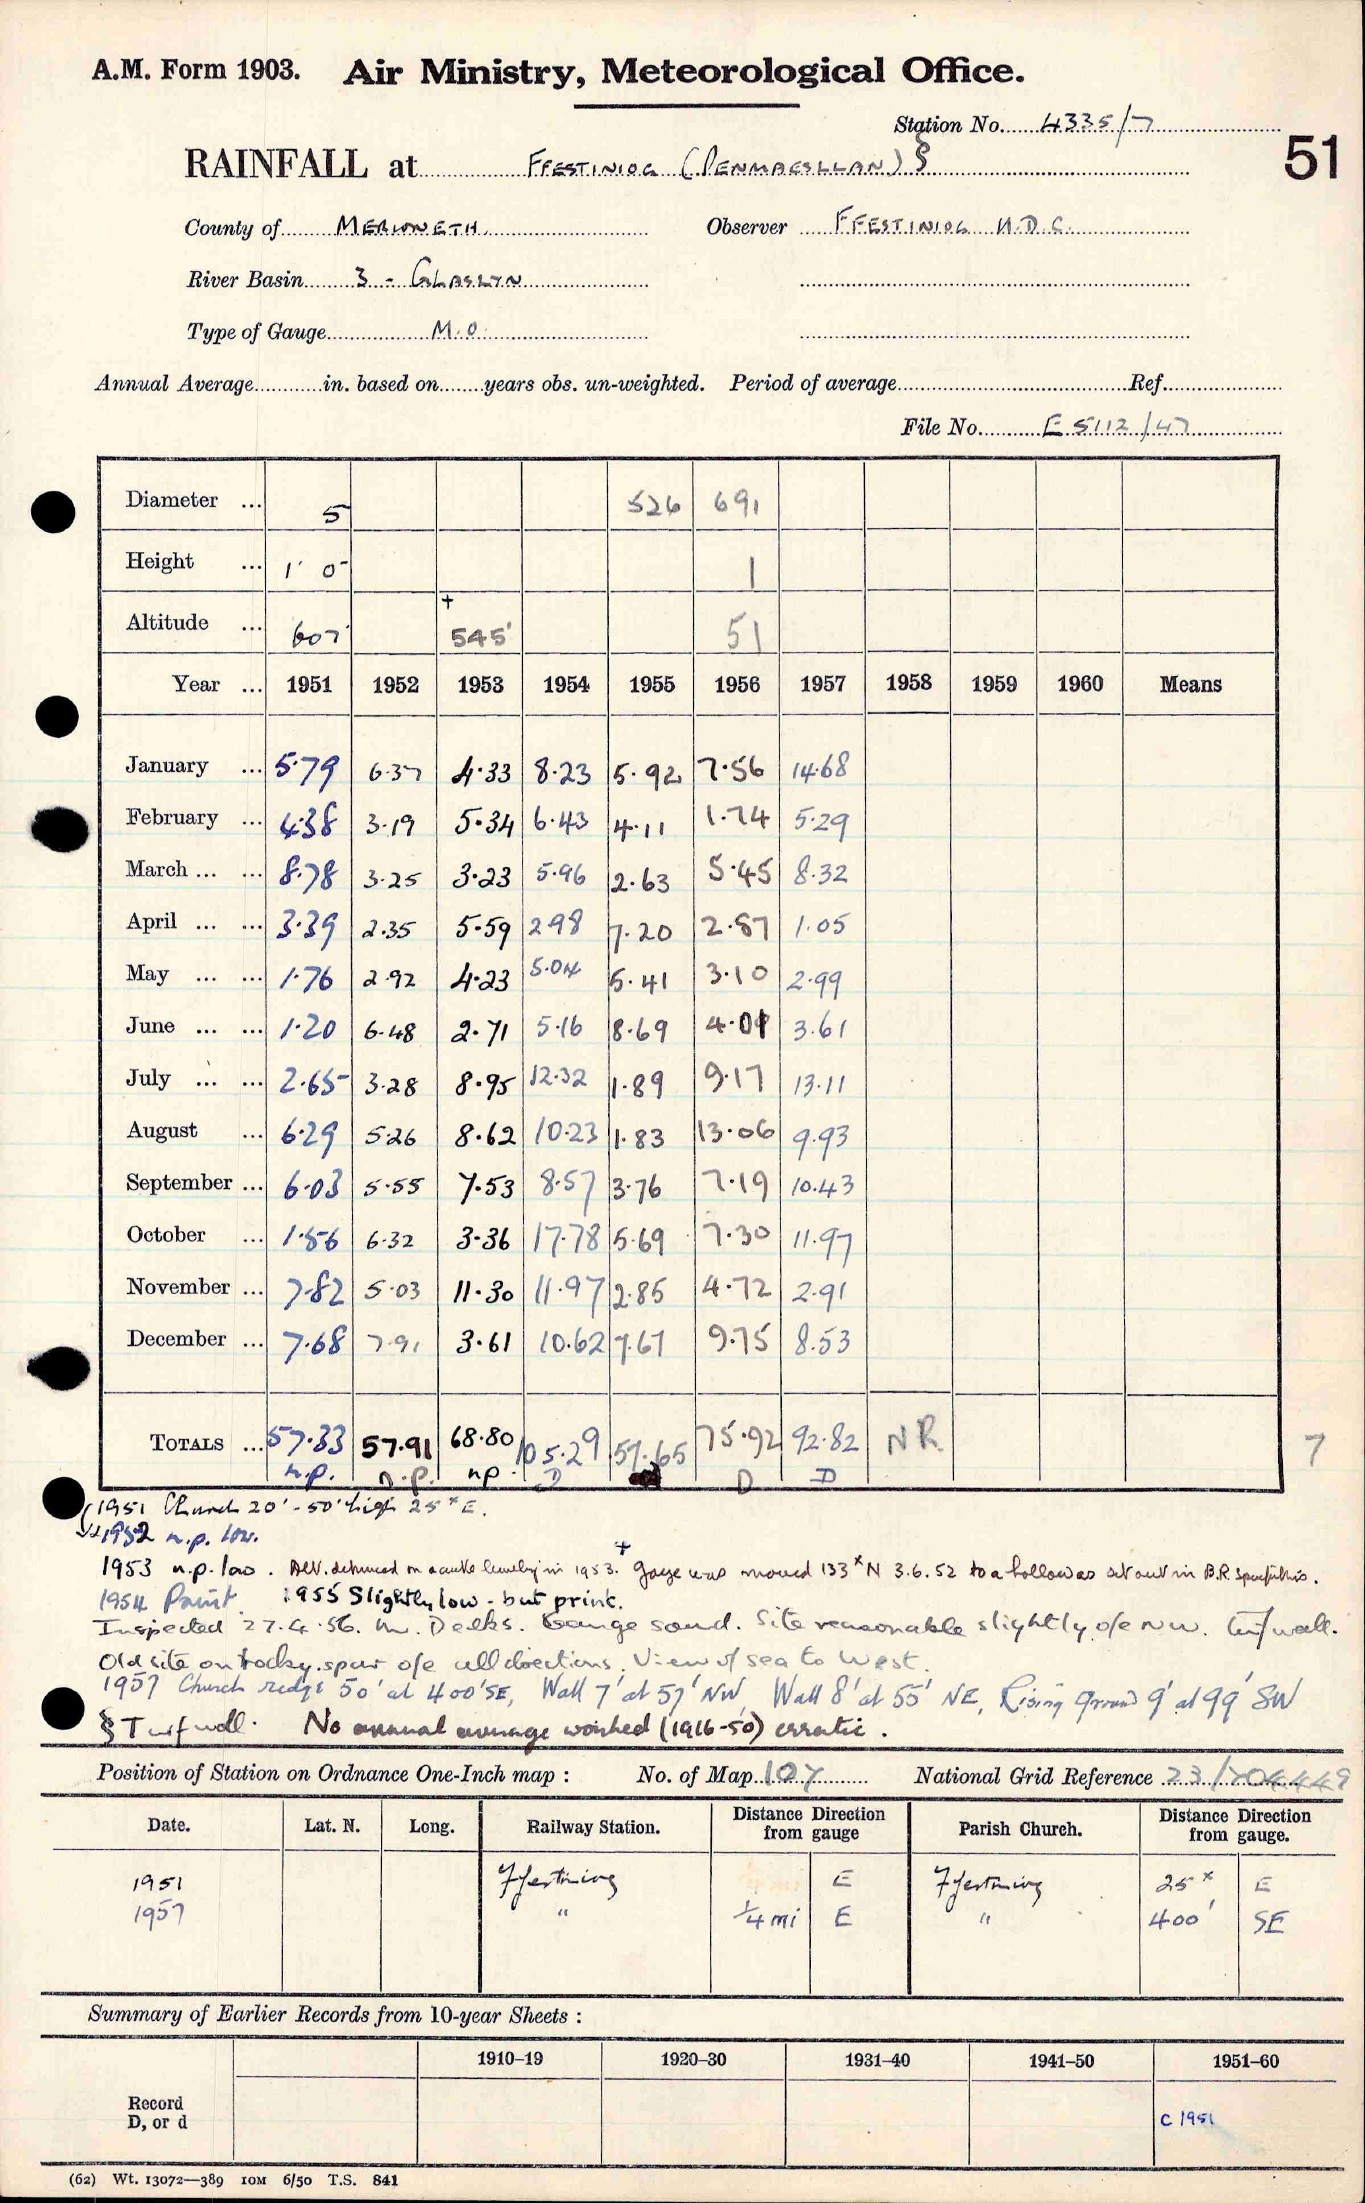 A.M. Form 1903. Air Ministry, Meteorological Office.
Station No. 4335/7
51
RAINFALL at FFESTINIOG (PENMAESLLAN) §
County of MERIONETH Observer FFESTINIOG U.D.C.
River Basin 3 - GLASLYN
Type of Gauge M.O.
Annual Average in. based on years obs. un-weighted. Period of average Ref.
File No. E 5112/47
Diameter ... 5 526 691
Height ... 1' 0" 1
Altitude ... 607' + 545' 51
Year ... 1951 1952 1953 1954 1955 1956 1957 1958 1959 1960 Means
January ... 5.79 6.37 4.33 8.23 5.92 7.56 14.68
February ... 4.38 3.19 5.34 6.43 4.11 1.74 5.29
March ... ... 8.78 3.25 3.23 5.96 2.63 5.45 8.32
April ... ... 3.39 2.35 5.59 2.98 7.20 2.87 1.05
May ... ... 1.76 2.92 4.23 5.04 5.41 3.10 2.99
June ... ... 1.20 6.48 2.71 5.16 8.69 4.01 3.61
July ... ... 2.65 3.28 8.95 12.32 1.89 9.17 13.11
August ... 6.29 5.26 8.62 10.23 1.83 13.06 9.93
September ... 6.03 5.55 7.53 8.57 3.76 7.19 10.43
October ... 1.56 6.32 3.36 17.78 5.69 7.30 11.97
November ... 7.82 5.03 11.30 11.97 2.85 4.72 2.91
December ... 7.68 7.91 3.61 10.62 7.67 9.75 8.53
TOTALS ... 57.33 57.91 68.80 105.29 57.65 75.92 92.82 NR 7
n.p. n.p. np. D D D
1951 Church 20' - 50' high 25ˣ E.
1952 n.p. low.
1953 n.p. low. Alt. determined on in 1953. + Gauge was moved 133ˣ N 3.6.52 to a hollow as set out in B.R.
1954 Print. 1955 Slightly low - but print.
Inspected 27.4.56. M. Delks. Gauge sound. Site reasonable slightly o/e NW. Turf wall.
Old site on rocky spur o/e all directions. View of sea to West.
1957 Church ridge 50' at 400' SE, Wall 7' at 57' NW, Wall 8' at 55' NE, Rising ground 9' at 99' SW
§ Turf wall. No annual average worked (1916-50) erratic.
Position of Station on Ordnance One-Inch map : No. of Map 107 National Grid Reference 23/704449
Date. Lat. N. Long. Railway Station. Distance Direction from gauge Parish Church. Distance Direction from gauge.
1951 Ffestiniog E Ffestiniog 25ˣ E
1957 " ¼ mi E " 400' SE
Summary of Earlier Records from 10-year Sheets :
1910–19 1920–30 1931–40 1941–50 1951–60
Record D, or d C 1951
(62) Wt. 13072—389 10M 6/50 T.S. 841